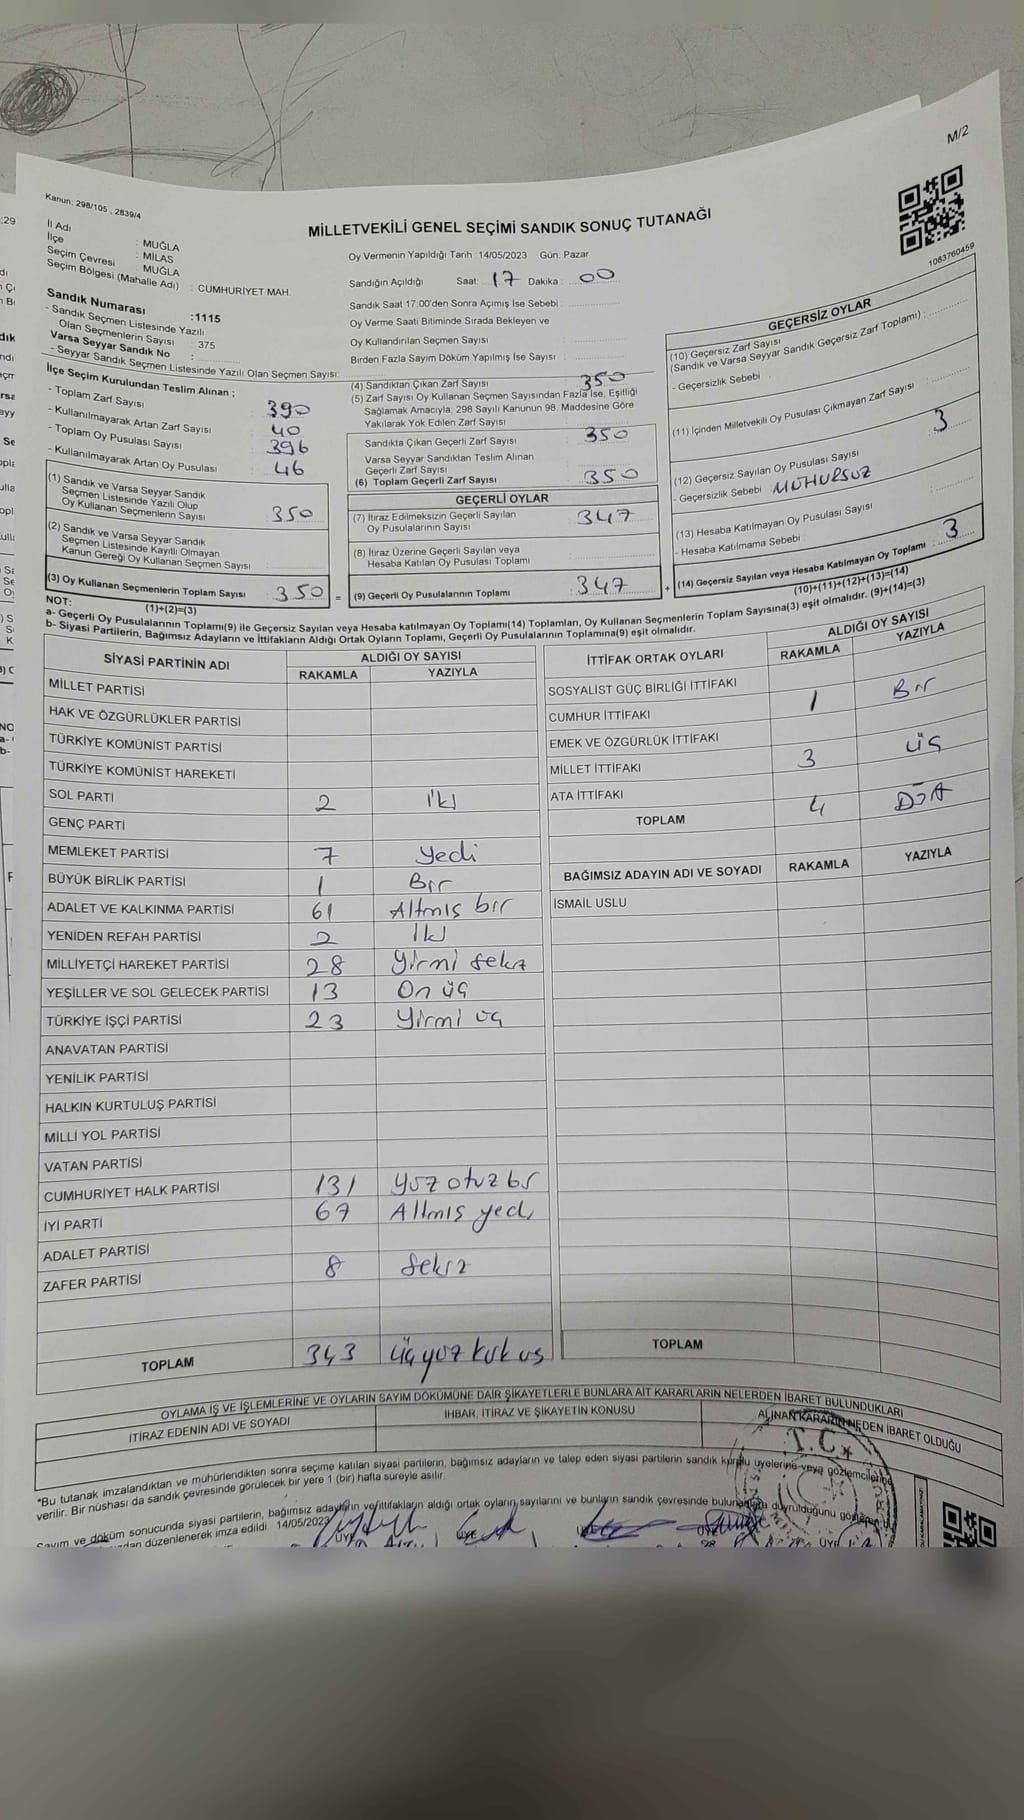 M/2
Kanun; 298/105 , 2839/4
MİLLETVEKİLİ GENEL SEÇİMİ SANDIK SONUÇ TUTANAĞI
1083760459
İl Adı : MUĞLA
İlçe : MİLAS
Seçim Çevresi : MUĞLA
Seçim Bölgesi (Mahalle Adı) : CUMHURİYET MAH.
Sandık Numarası :1115
- Sandık Seçmen Listesinde Yazılı
Olan Seçmenlerin Sayısı : 375
Varsa Seyyar Sandık No :
- Seyyar Sandık Seçmen Listesinde Yazılı Olan Seçmen Sayısı:
Oy Vermenin Yapıldığı Tarih : 14/05/2023 Gün: Pazar
Sandığın Açıldığı Saat: 17 Dakika : 00
Sandık Saat 17:00'den Sonra Açımış İse Sebebi :
Oy Verme Saati Bitiminde Sırada Bekleyen ve
Oy Kullandırılan Seçmen Sayısı :
Birden Fazla Sayım Döküm Yapılmış İse Sayısı :
İlçe Seçim Kurulundan Teslim Alınan ;
- Toplam Zarf Sayısı : 390
- Kullanılmayarak Artan Zarf Sayısı : 40
- Toplam Oy Pusulası Sayısı : 396
- Kullanılmayarak Artan Oy Pusulası : 46
(1) Sandık ve Varsa Seyyar Sandık
Seçmen Listesinde Yazılı Olup
Oy Kullanan Seçmenlerin Sayısı : 350
(2) Sandık ve Varsa Seyyar Sandık
Seçmen Listesinde Kayıtlı Olmayan
Kanun Gereği Oy Kullanan Seçmen Sayısı :
(3) Oy Kullanan Seçmenlerin Toplam Sayısı : 350 =
(1)+(2)=(3)
(4) Sandıktan Çıkan Zarf Sayısı : 350
(5) Zarf Sayısı Oy Kullanan Seçmen Sayısından Fazla İse, Eşitliği
Sağlamak Amacıyla, 298 Sayılı Kanunun 98. Maddesine Göre
Yakılarak Yok Edilen Zarf Sayısı :
Sandıkta Çıkan Geçerli Zarf Sayısı : 350
Varsa Seyyar Sandıktan Teslim Alınan
Geçerli Zarf Sayısı :
(6) Toplam Geçerli Zarf Sayısı : 350
GEÇERLİ OYLAR
(7) İtiraz Edilmeksizin Geçerli Sayılan
Oy Pusulalarının Sayısı : 347
(8) İtiraz Üzerine Geçerli Sayılan veya
Hesaba Katılan Oy Pusulası Toplamı :
(9) Geçerli Oy Pusulalarının Toplamı : 347 +
GEÇERSİZ OYLAR
(10) Geçersiz Zarf Sayısı
(Sandık ve Varsa Seyyar Sandık Geçersiz Zarf Toplamı) :
- Geçersizlik Sebebi :
(11) İçinden Milletvekili Oy Pusulası Çıkmayan Zarf Sayısı :
(12) Geçersiz Sayılan Oy Pusulası Sayısı : 3
- Geçersizlik Sebebi : MÜHÜRSÜZ
(13) Hesaba Katılmayan Oy Pusulası Sayısı :
- Hesaba Katılmama Sebebi :
(14) Geçersiz Sayılan veya Hesaba Katılmayan Oy Toplamı : 3
(10)+(11)+(12)+(13)=(14)
NOT:
a- Geçerli Oy Pusulalarının Toplamı(9) ile Geçersiz Sayılan veya Hesaba katılmayan Oy Toplamı(14) Toplamları, Oy Kullanan Seçmenlerin Toplam Sayısına(3) eşit olmalıdır. (9)+(14)=(3)
b- Siyasi Partilerin, Bağımsız Adayların ve İttifakların Aldığı Ortak Oyların Toplamı, Geçerli Oy Pusulalarının Toplamına(9) eşit olmalıdır.
SİYASİ PARTİNİN ADI ALDIĞI OY SAYISI
RAKAMLA YAZIYLA
MİLLET PARTİSİ
HAK VE ÖZGÜRLÜKLER PARTİSİ
TÜRKİYE KOMÜNİST PARTİSİ
TÜRKİYE KOMÜNİST HAREKETİ
SOL PARTİ 2 iki
GENÇ PARTİ
MEMLEKET PARTİSİ 7 yedi
BÜYÜK BİRLİK PARTİSİ 1 Bir
ADALET VE KALKINMA PARTİSİ 61 Altmış bir
YENİDEN REFAH PARTİSİ 2 iki
MİLLİYETÇİ HAREKET PARTİSİ 28 yirmi sekiz
YEŞİLLER VE SOL GELECEK PARTİSİ 13 On üç
TÜRKİYE İŞÇİ PARTİSİ 23 Yirmi üç
ANAVATAN PARTİSİ
YENİLİK PARTİSİ
HALKIN KURTULUŞ PARTİSİ
MİLLİ YOL PARTİSİ
VATAN PARTİSİ
CUMHURİYET HALK PARTİSİ 131 yüz otuz bir
İYİ PARTİ 67 Altmış yedi
ADALET PARTİSİ
ZAFER PARTİSİ 8 sekiz
TOPLAM 343 üçyüz kırk üç
İTTİFAK ORTAK OYLARI ALDIĞI OY SAYISI
RAKAMLA YAZIYLA
SOSYALİST GÜÇ BİRLİĞİ İTTİFAKI
CUMHUR İTTİFAKI 1 Bir
EMEK VE ÖZGÜRLÜK İTTİFAKI
MİLLET İTTİFAKI 3 üç
ATA İTTİFAKI
TOPLAM 4 Dört
BAĞIMSIZ ADAYIN ADI VE SOYADI RAKAMLA YAZIYLA
İSMAİL USLU
TOPLAM
OYLAMA İŞ VE İŞLEMLERİNE VE OYLARIN SAYIM DÖKÜMÜNE DAİR ŞİKAYETLERLE BUNLARA AİT KARARLARIN NELERDEN İBARET BULUNDUKLARI
İTİRAZ EDENİN ADI VE SOYADI İHBAR, İTİRAZ VE ŞİKAYETİN KONUSU ALINAN KARARIN NEDEN İBARET OLDUĞU
T.C.
*Bu tutanak imzalandıktan ve mühürlendikten sonra seçime katılan siyasi partilerin, bağımsız adayların ve talep eden siyasi partilerin sandık kurulu üyelerine veya gözlemcilerine
verilir. Bir nüshası da sandık çevresinde görülecek bir yere 1 (bir) hafta süreyle asılır.
Sayım ve döküm sonucunda siyasi partilerin, bağımsız adayların ve ittifakların aldığı ortak oyların sayılarını ve bunların sandık çevresinde bulunanlara duyrulduğunu
düzenlenerek imza edildi. 14/05/2023